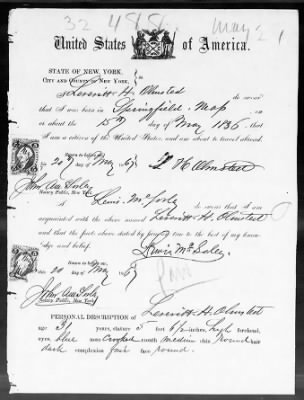 32 488 May 21
United States of America.
STATE OF NEW YORK,
CITY AND COUNTY OF NEW YORK,
H. Olmsted do swear
that I was born in Springfield Mass on
or about the 15th day of May 1836 that
I am a citizen of the United States, and am about to travel abroad.
Sworn to before me,
20 May 1867 H Olmsted
Notary Public, New York
I, Lewis do swear that I am
acquainted with the above named H. Olmsted
and that the facts above stated by him are true to the best of my know-
ledge and belief. Lewis
Sworn to before me,
20 May 1867
Notary Public, New York
PERSONAL DESCRIPTION of H. Olmsted
age 31 years, stature 5 feet 6 1/2 inches, high forehead,
eyes blue nose crooked mouth medium chin round hair
dark complexion fair face round.